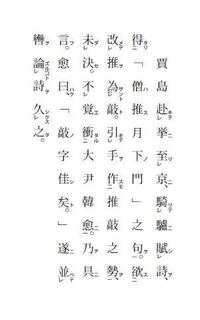 賈島赴挙至京、騎驢賦詩、
得「僧推月下門」之句。欲
改推為敲引手作推敲之勢、
未決。不覚衝大尹韓愈。乃具
言。愈曰「敲字佳矣。」遂並
轡論詩久之。